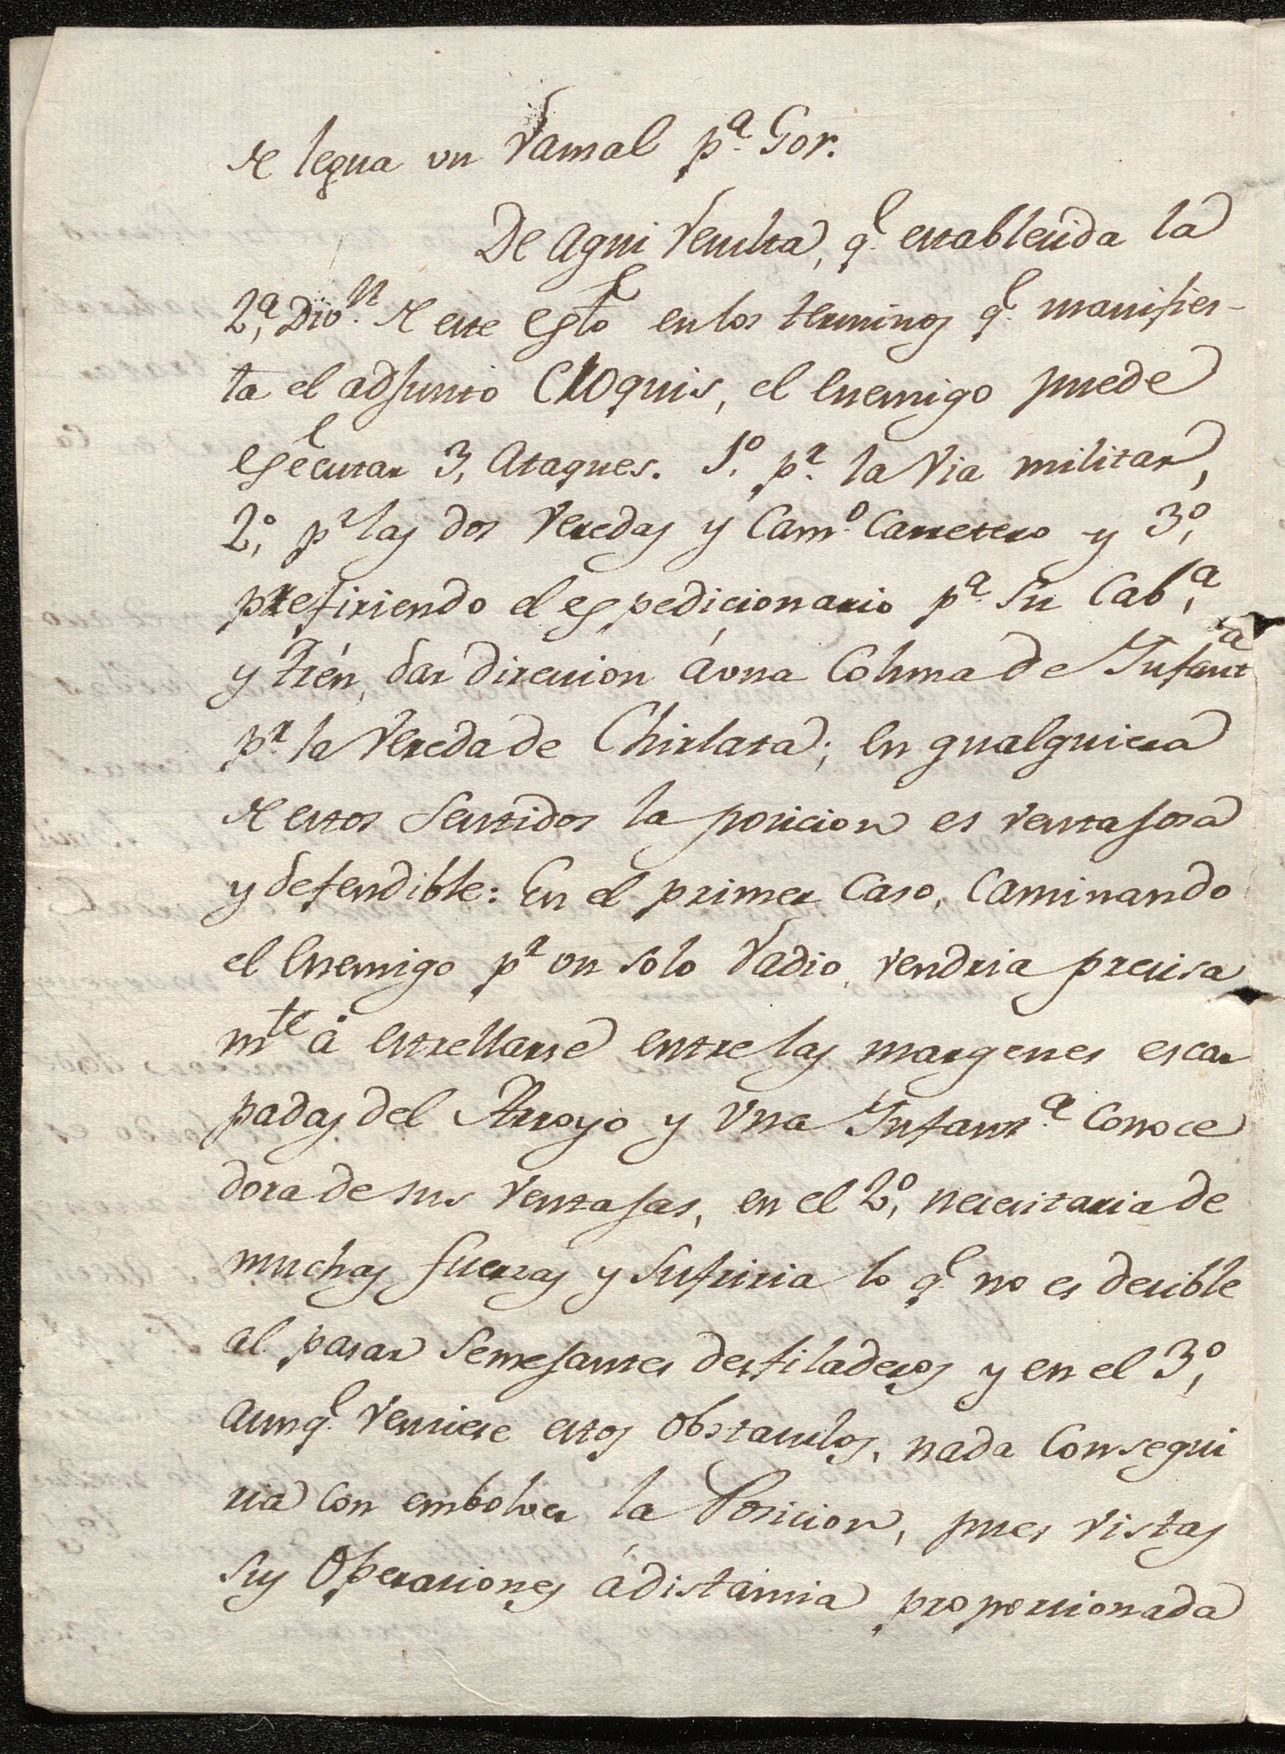 de legua un ramal p.ª Gor.
De aqui resulta, q.e establecida la
2.ª Div.n de este egto en los terminos q.e manifies-
ta el adjunto Croquis, el Enemigo puede
egecutar 3, Ataques. 1.º p.r la via militar,
2.º p.r las dos veredas y Cam.º Carretero y 3.º,
prefiriendo el espedicionario p.ª su Cab.ª,
y Trén, dar direccion á una Coluna de Infant.ª
p.r la Vereda de Chirlata; en qualquiera
de estos sentidos la posicion es ventajosa
y defendible: En el primer Caso, Caminando
el Enemigo p.r un solo radio, vendria precisa
m.te á estrellarse entre las margenes escar
padas del Arroyo y una Infant.ª Conoce
dora de sus ventajas, en el 2.º, necesitaria de
muchas fuerzas y sufriria lo q.e no es decible
al pasar semejantes desfiladeros y en el 3.º,
aunq.e venciese estos obstaculos, nada Consegui
ria con embolver la Posicion, pues vistas
sus Operaciones á distancia proporcionada